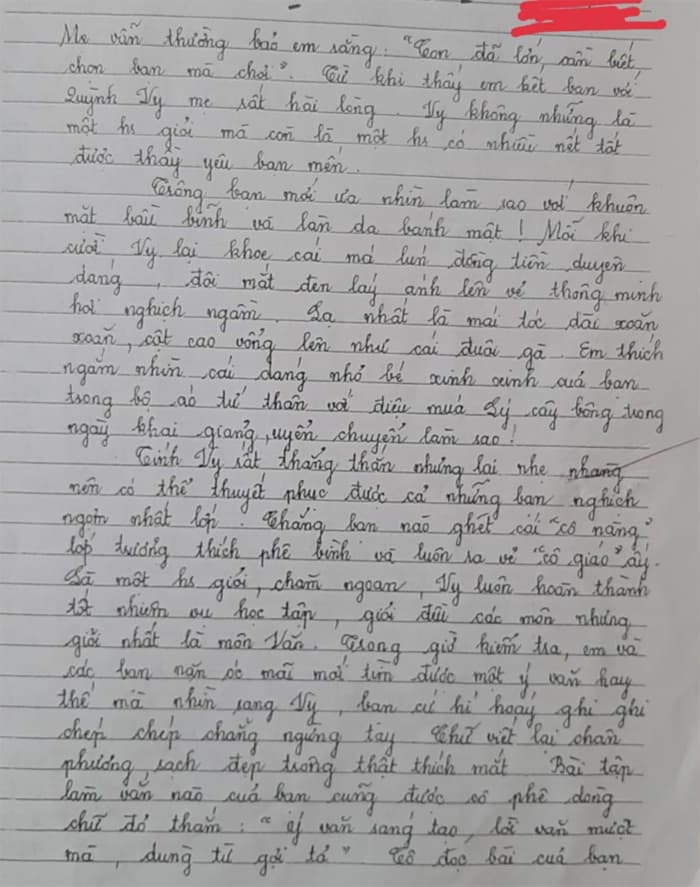 Mẹ vẫn thường bảo em rằng: "Con đã lớn, cần biết
chọn bạn mà chơi". Từ khi thấy em kết bạn với
Quỳnh Vy mẹ rất hài lòng. Vy không những là
một hs giỏi mà còn là một hs có nhiều nết tốt
được thầy yêu bạn mến.
Trông bạn mới ưa nhìn làm sao với khuôn
mặt bầu bĩnh và làn da bánh mật! Mỗi khi
cười Vy lại khoe cái má lún đồng tiền duyên
dáng, đôi mắt đen láy ánh lên vẻ thông minh
hơi nghịch ngầm. Lạ nhất là mái tóc dài xoăn
xoăn, cột cao vổng lên như cái đuôi gà. Em thích
ngắm nhìn cái dáng nhỏ bé xinh xinh của bạn
trong bộ áo tứ thân với điệu múa Lý cây bông trong
ngày khai giảng, uyển chuyển làm sao!
Tính Vy rất thẳng thắn nhưng lại nhẹ nhàng
nên có thể thuyết phục được cả những bạn nghịch
ngợm nhất lớp. Chẳng bạn nào ghét cái "cô nàng"
lớp trưởng thích phê bình và luôn ra vẻ "cô giáo" ấy.
Là một hs giỏi, chăm ngoan, Vy luôn hoàn thành
tốt nhiệm vụ học tập, giỏi đều các môn nhưng
giỏi nhất là môn Văn. Trong giờ kiểm tra, em và
các bạn nặn óc mãi mới tìm được một ý văn hay
thế mà nhìn sang Vy, bạn cứ hí hoáy ghi ghi
chép chép chẳng ngừng tay Chữ viết lại chân
phương, sạch đẹp trông thật thích mắt Bài tập
làm văn nào của bạn cũng được cô phê dòng
chữ đỏ thắm: "ý văn sáng tạo, lời văn mượt
mà, dùng từ gợi tả" Cô đọc bài của bạn